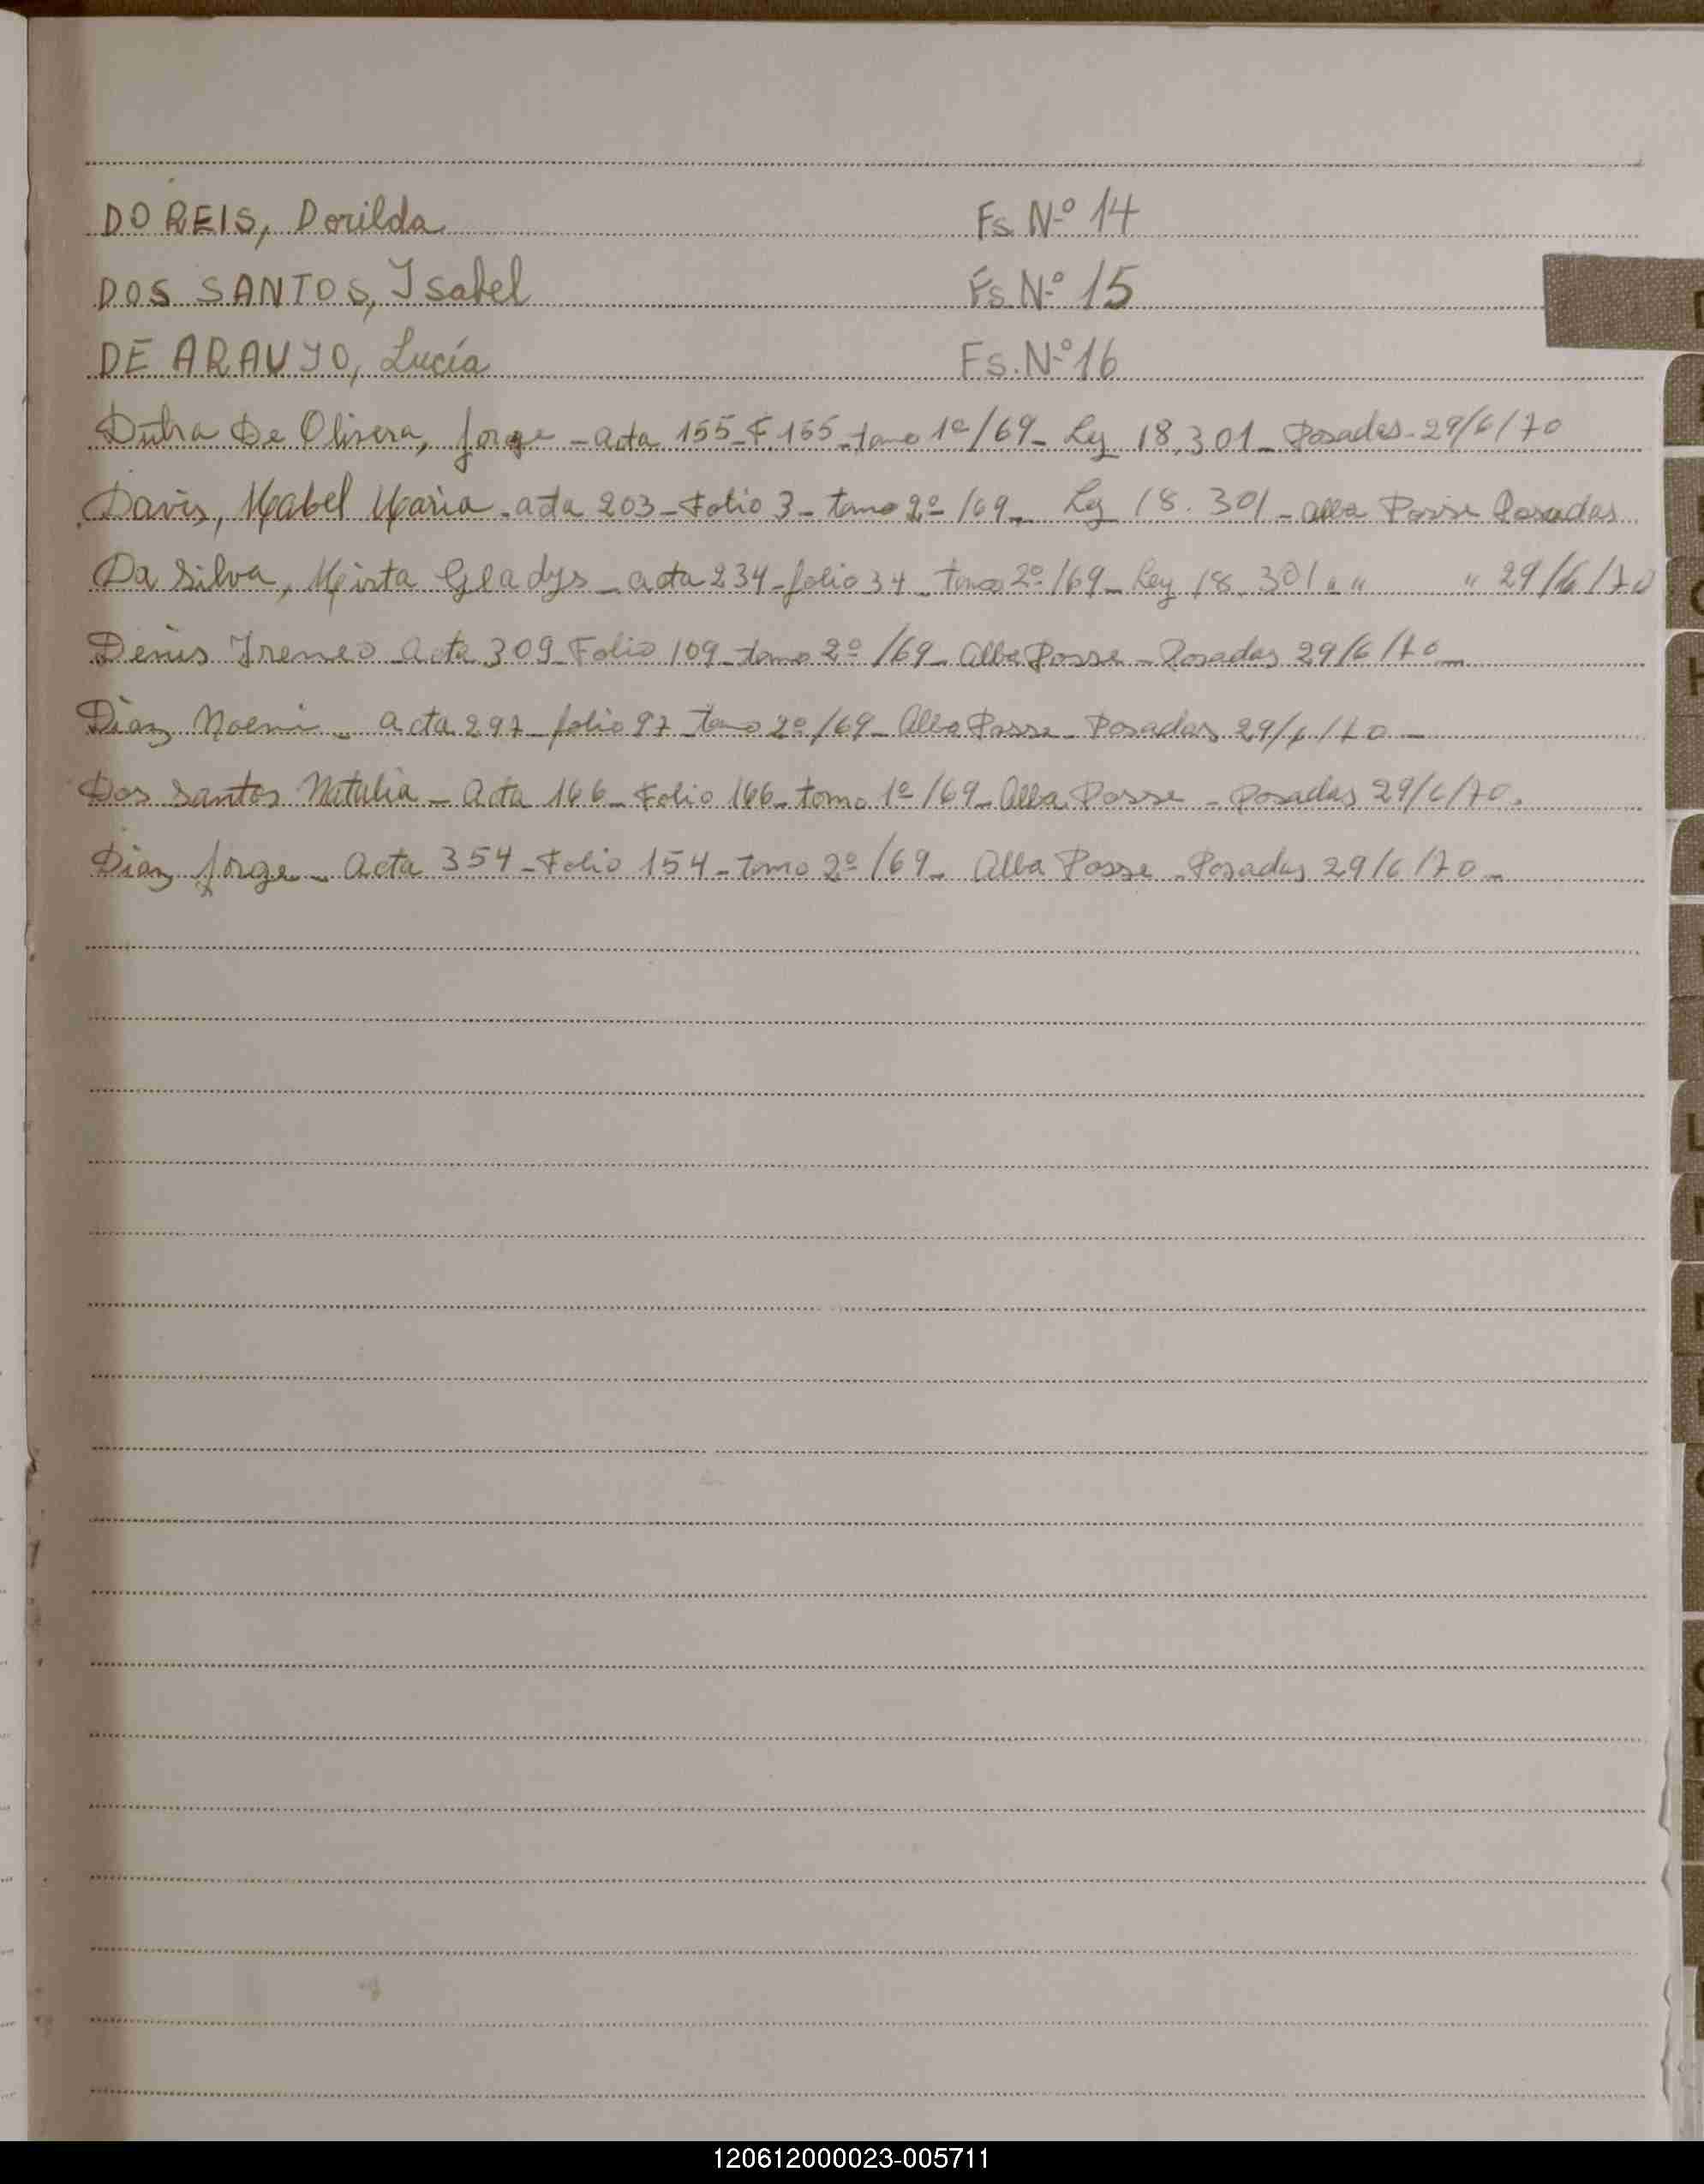 DO REIS, Dorilda Fs. Nº 14
DOS SANTOS, Isabel Fs. Nº 15
DE ARAUJO, Lucía Fs. Nº 16
Dutra De Olivera, Jorge - acta 155 - F. 155 - tomo 1º/69 - Ley 18.301 - Posadas - 29/6/70
Davis, Mabel Maria - acta 203 - Folio 3 - tomo 2º/69 - Ley 18.301 - Alba Posse Posadas
Da Silva, Mirta Gladys - acta 234 - folio 34 - tomo 2º/69 - Ley 18.301 " " " 29/6/70
Denis Ireneo Acta 309 Folio 109 - tomo 2º/69 - Alba Posse - Posadas 29/6/70 -
Diaz Noemi - acta 297 - folio 97 - tomo 2º/69 - Alba Posse - Posadas 29/6/70 -
Dos Santos Natalia - Acta 166 - Folio 166 - tomo 1º/69 - Alba Posse - Posadas 29/6/70.
Diaz Jorge - Acta 354 - Folio 154 - tomo 2º/69 - Alba Posse - Posadas 29/6/70 -
H
L
120612000023-005711